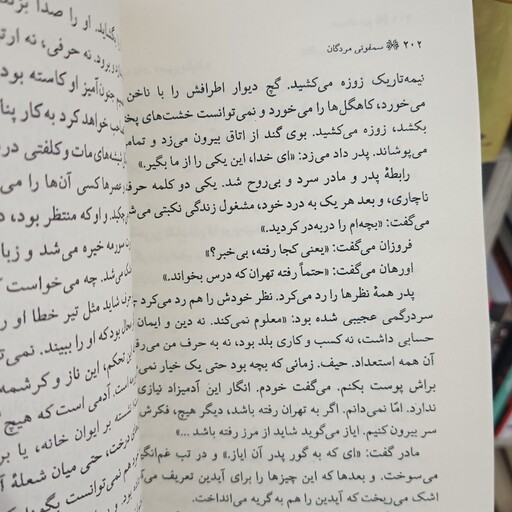 ۲۰۲ سمفونی مردگان
نیمه‌تاریک زوزه می‌کشید. گچ دیوار اطرافش را با ناخن
می‌خورد، کاهگل‌ها را می‌خورد و نمی‌توانست خشت‌های پخ
بکشد، زوزه می‌کشید. بوی گند از اتاق بیرون می‌زد و تمام
می‌پوشاند. پدر داد می‌زد: «ای خدا، این یکی را از ما بگیر.»
رابطهٔ پدر و مادر سرد و بی‌روح شد. یکی دو کلمه حرف
ناچاری، و بعد هر یک به درد خود، مشغول زندگی نکبتی می‌ش
می‌گفت: «بچه‌ام را دربه‌در کردید.»
فروزان می‌گفت: «یعنی کجا رفته، بی‌خبر؟»
اورهان می‌گفت: «حتماً رفته تهران که درس بخواند.»
پدر همهٔ نظرها را رد می‌کرد. نظر خودش را هم رد می‌کرد
سردرگمی عجیبی شده بود: «معلوم نمی‌کند. نه دین و ایمان
حسابی داشت، نه کسب و کاری بلد بود، نه به حرف من می‌رف
آن همه استعداد. حیف. زمانی که بچه بود حتی یک خیار نمی
براش پوست بکنم. می‌گفت خودم. انگار این آدمیزاد نیازی
ندارد. امّا نمی‌دانم. اگر به تهران رفته باشد، دیگر هیچ، فکرش
سر بیرون کنیم. ایاز می‌گوید شاید از مرز رفته باشد ...»
مادر گفت: «ای که به گور پدر آن ایاز.» و در تب غم‌انگ
می‌سوخت. و بعدها که این چیزها را برای آیدین تعریف می‌
اشک می‌ریخت که آیدین را هم به گریه می‌انداخت.
بگشاید. او را صدا بزند
بود. نه حرفی، نه ارت
جنون‌آمیز او کاسته بود
خواهد کرد به کار پنا
شیشه‌های مات و کلفتی در
عصرها کسی آن‌ها را می
و او که منتظر بود، د
خیره می‌شد و زیا
می‌شد. چه می‌خواست ک
شاید مثل تیر خطا او ر
بود که او را ببیند. نمی‌ت
این تحکم، این ناز و کرشمه
است. آدمی است که هیچ
نشسته بر ایوان خانه، یا بر
درخت، حتی میان شعلهٔ آ
هم نمی‌توانست بگوید که